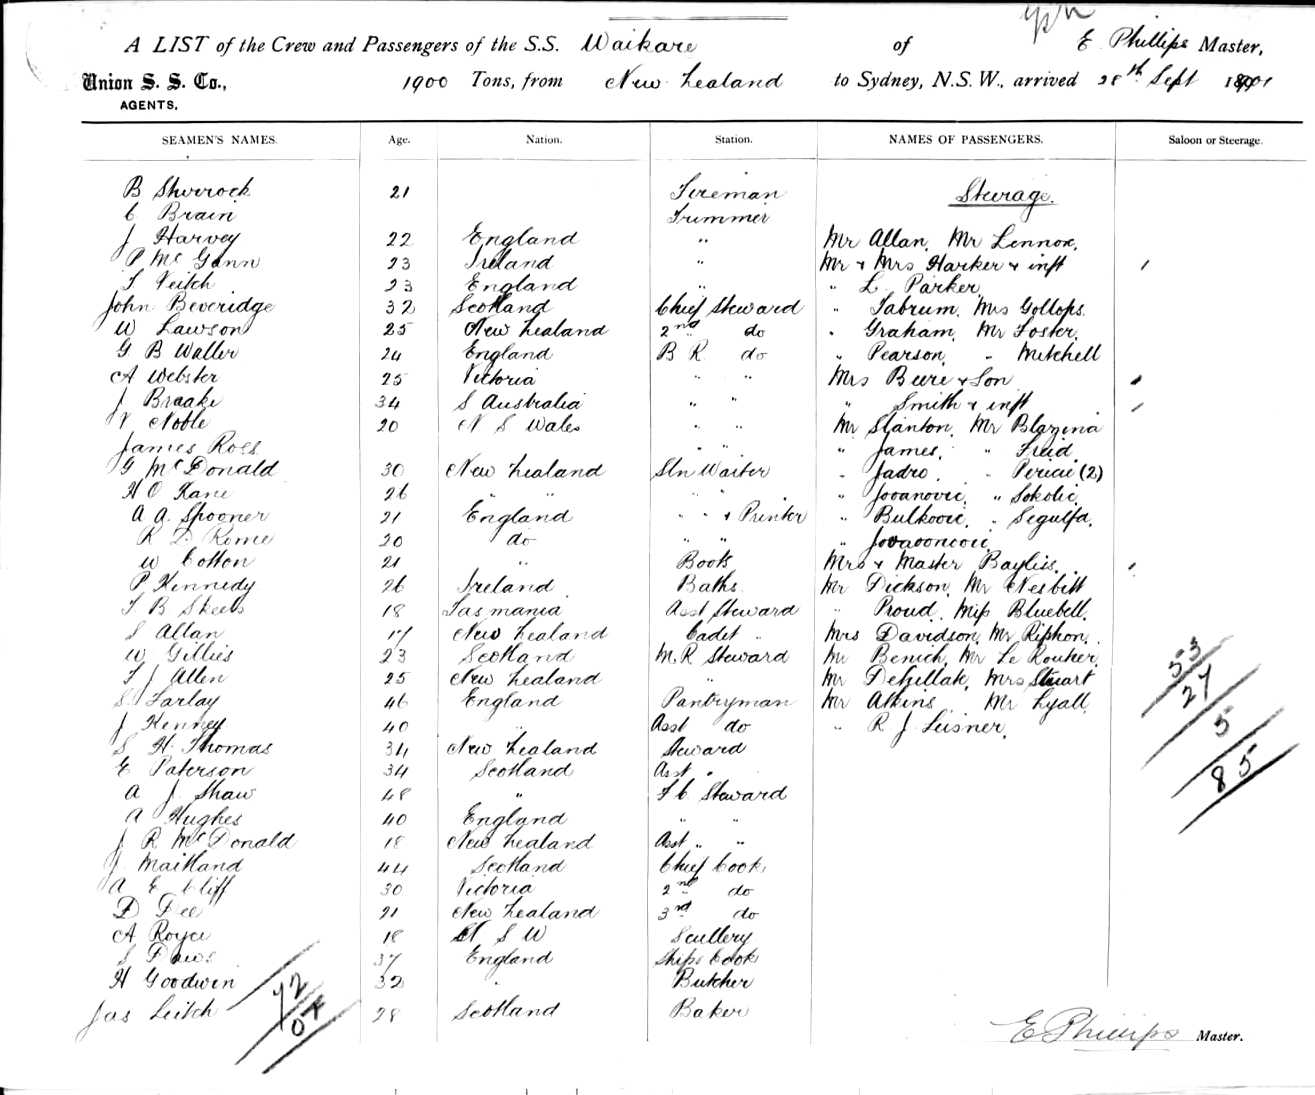 A LIST of the Crew and Passengers of the S.S. Waikare of E Phillips Master,
Union S. S. Co., 1900 Tons, from New Zealand to Sydney, N.S.W., arrived 28th Sept 1901
AGENTS.
SEAMEN'S NAMES. Age. Nation. Station. NAMES OF PASSENGERS. Saloon or Steerage.
B Sherrock 21 Fireman Steerage.
C Brain Trimmer
J Harvey 22 England " Mr Allan, Mr Lennox,
P McGann 23 Ireland " Mr & Mrs Harker & inft
T Veitch 23 England " " L. Parker
John Beveridge 32 Scotland Chief Steward " Tabrum, Mrs Gollops
W Lawson 25 New Zealand 2nd do " Graham, Mr Foster,
G B Waller 24 England B R do " Pearson, " Mitchell
A Webster 25 Victoria " " Mrs Beere & Son
J Braake 34 S Australia " " " Smith & inft
V Noble 20 N S Wales " " Mr Stanton, Mr Blazina
James Ross " " " James, "
G McDonald 30 New Zealand Sln Waiter " Jadro, " Pericic (2)
H O Kane 26 " " " " " Jovanovic, " Sokolic
A A Spooner 21 England " " & Printer " Bulkovic, " Segulfa,
R D Rome 20 do " " "
W Cotton 21 " Boots Mrs & Master Bayliss,
P Kennedy 26 Ireland Baths. Mr Dickson, Mr Nesbitt
T B Skeels 18 Tasmania Asst Steward " Proud, Miss Bluebell,
S Allan 17 New Zealand Cadet " Mrs Davidson, Mr Riphon,
W Gillies 23 Scotland M. R Steward Mr Benich, Mr Le Rouher,
F J Allen 25 New Zealand " Mr Mrs Stuart
S Farlay 46 England Pantryman Mr Atkins Mr Lyall,
J Kenney 40 " Asst do " R J Leisner,
S H Thomas 34 New Zealand Steward
E Paterson 34 Scotland Asst "
A J Shaw 48 " F C Steward
A Hughes 40 England " "
J R McDonald 18 New Zealand Asst " "
J Maitland 44 Scotland Chief Cook
A E Cliff 30 Victoria 2nd do
D Dee 21 New Zealand 3rd do
A Royce 18 N S W Scullery
S Daws 37 England Ships Cook
H Goodwin 32 " Butcher
Jas Leitch 28 Scotland Baker
53
27
5
85
72
E Phillips Master.